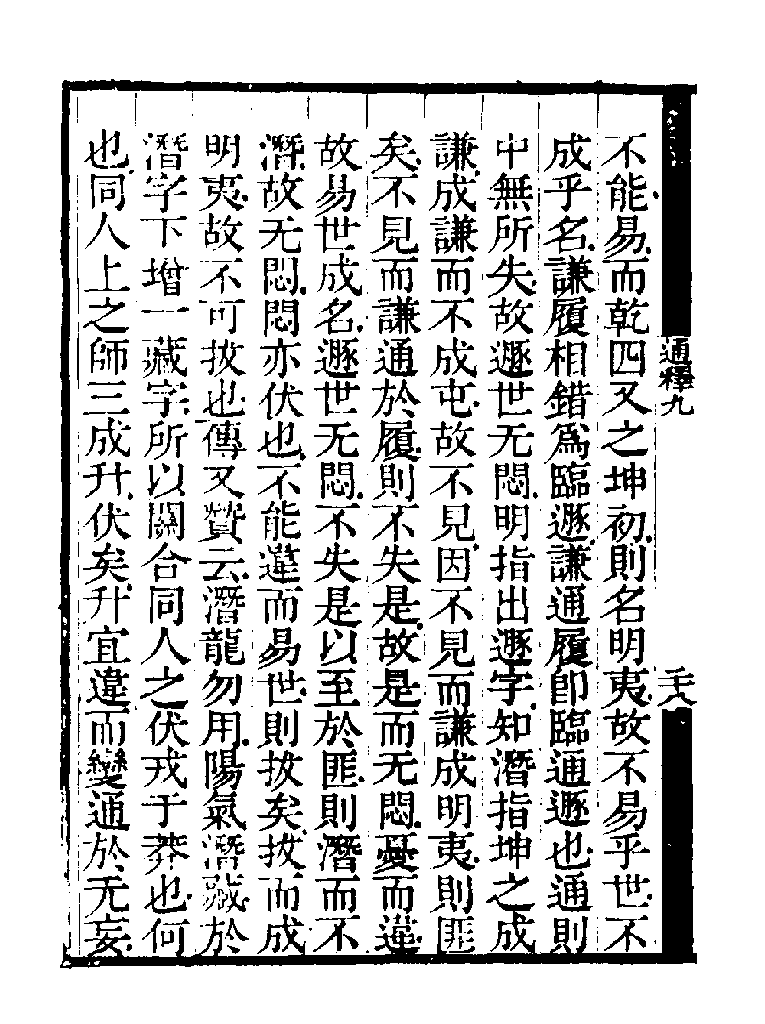 不能易而乾四又之坤初則名明夷故不易乎世不
成乎名謙履相錯爲臨遯謙通履卽臨通遯也通則
中無所失故遯世无悶明指出遯字知潛指坤之成
謙成謙而不成屯故不見因不見而謙成明夷則匪
矣不見而謙通於履則不失是故是而无悶憂而違
故易世成名遯世无悶不失是以至於匪則潛而不
潛故无悶悶亦伏也不能違而易世則拔矣拔而成
明夷故不可拔也傳又贊云潛龍勿用陽氣潛藏於
潛字下增一藏字所以關合同人之伏戎于莽也何
也同人上之師三成升伏矣升宜違而變通於无妄
通釋九
二十八